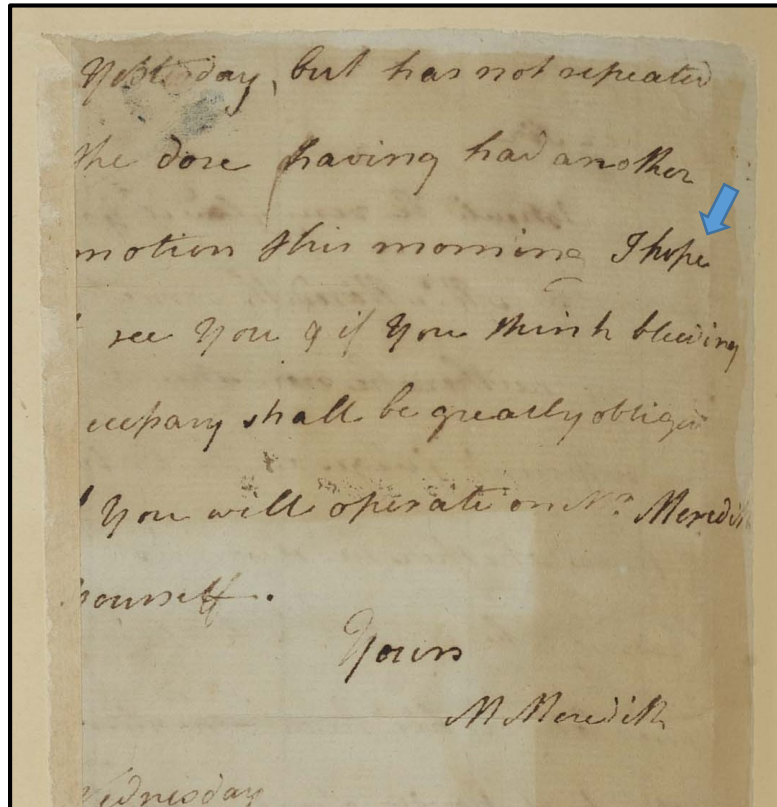 Yesterday, but has not repeated
the dose having had another
motion this morning I hope
see You & if You think bleeding
ecessary shall be greatly oblig
You will operate on Mr. Meredith
yourself.
Yours
M Meredith
Wednesday